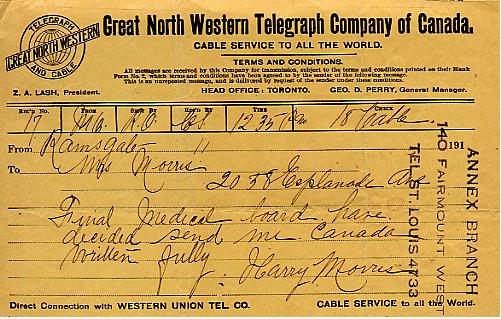 TELEGRAPH
GREAT NORTH WESTERN
AND CABLE
Great North Western Telegraph Company of Canada.
CABLE SERVICE TO ALL THE WORLD.
TERMS AND CONDITIONS.
All messages are received by this Company for transmission, subject to the terms and conditions printed on their Blank
Form No. 2, which terms and conditions have been agreed to by the sender of the following message.
This is an unrepeated message, and is delivered by request of the sender under these conditions.
Z. A. LASH, President.
HEAD OFFICE: TORONTO.
GEO. D. PERRY, General Manager.
REC'D NO. FROM SENT BY REC'D BY TIME CHECK
17 12.35 18 Cable
From Ramsgate 11 191
To Mrs Morris
2058 Esplanade Ave
Final Medical board have
decided send me Canada
written fully.
Harry Morris
ANNEX BRANCH
140 FAIRMOUNT WEST
TEL. ST. LOUIS 4733
Direct Connection with WESTERN UNION TEL. CO.
CABLE SERVICE to all the World.